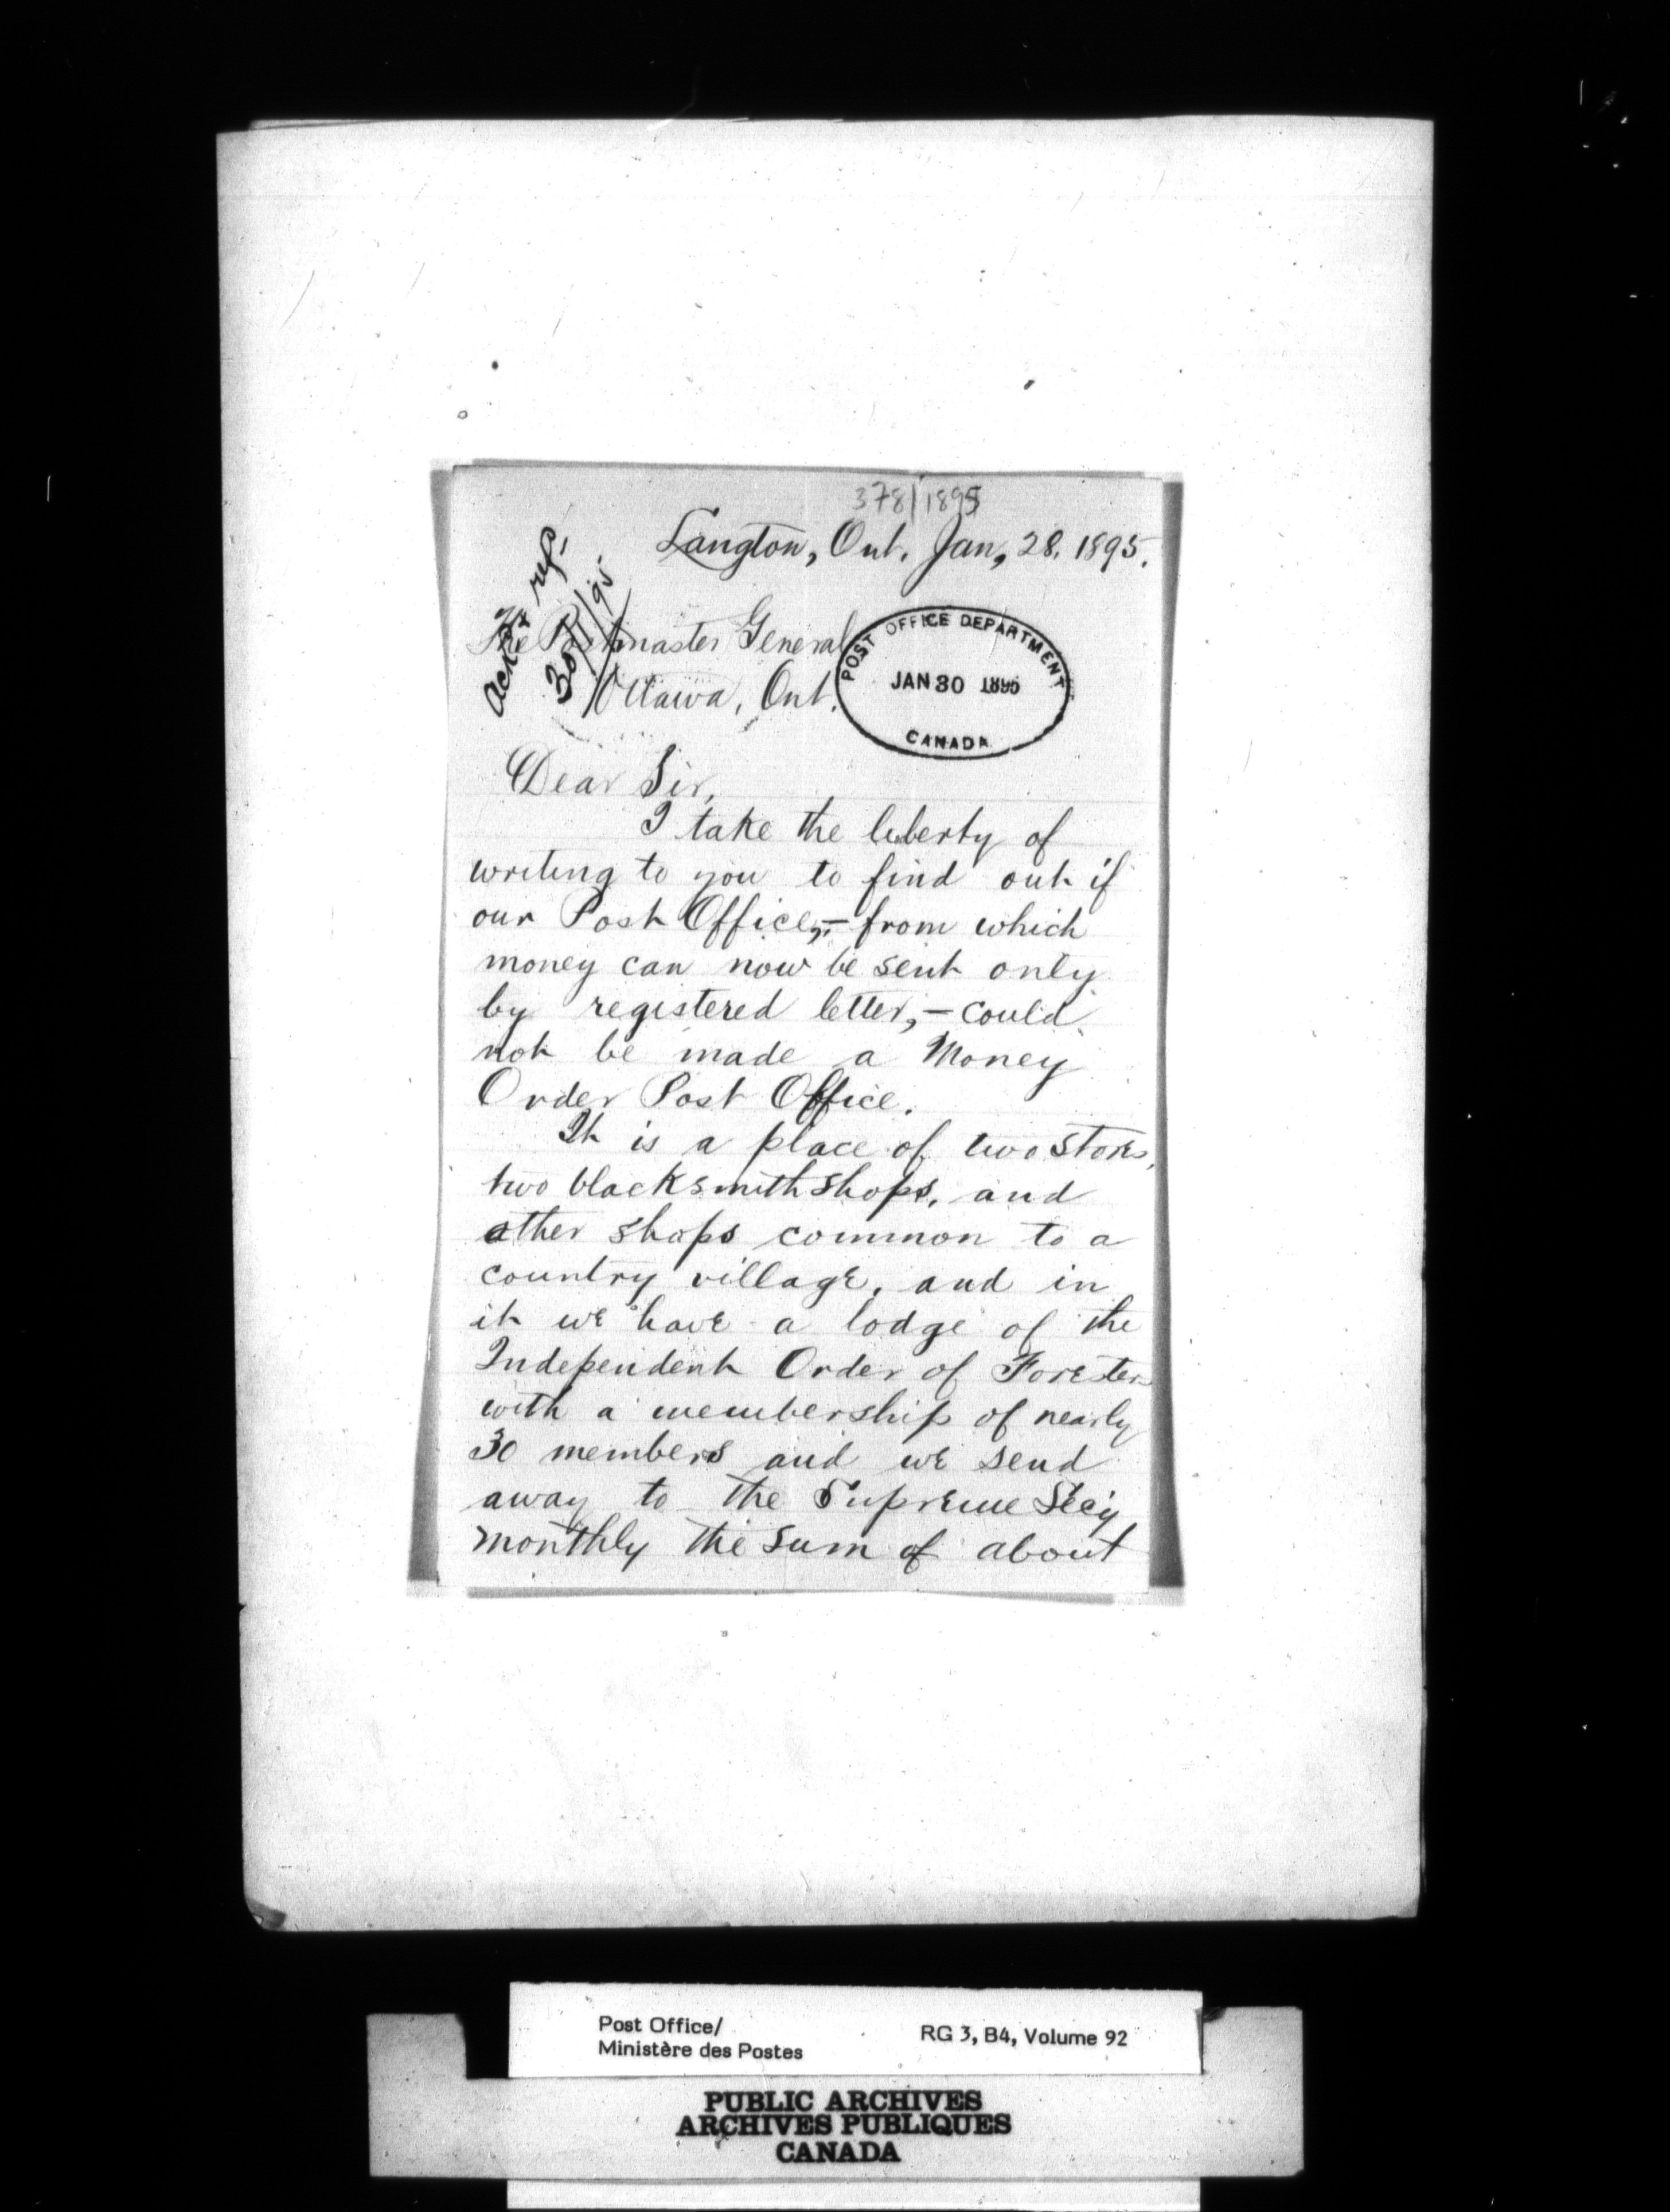 378/1895
Langton, Ont. Jan, 28. 1895.
Ack & ref.
30/1/95
The Postmaster General
Ottawa, Ont.
POST OFFICE DEPARTMENT
JAN 30 1895
CANADA
Dear Sir,
I take the liberty of
writing to you to find out if
our Post Office,- from which
money can now be sent only
by registered letter,- could
not be made a Money
Order Post Office.
It is a place of two stores,
two blacksmith shops, and
other shops common to a
country village, and in
it we have a lodge of the
Independent Order of Foresters
with a membership of nearly
30 members and we send
away to the Supreme Sec'y
monthly the sum of about
Post Office/
Ministère des Postes
RG 3, B4, Volume 92
PUBLIC ARCHIVES
ARCHIVES PUBLIQUES
CANADA